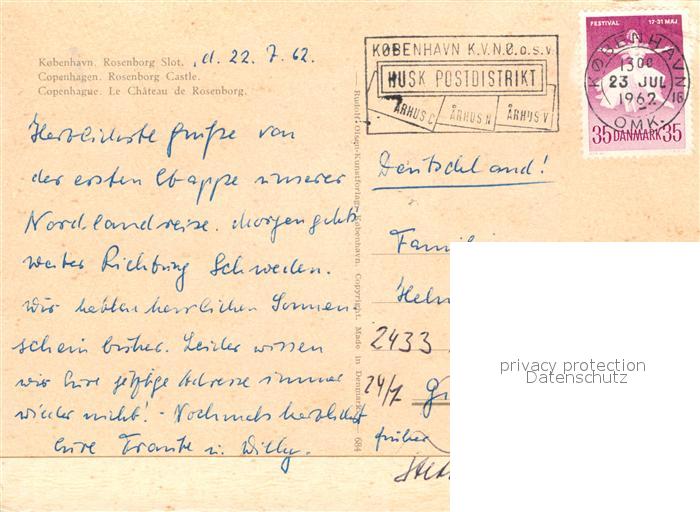 København. Rosenborg Slot. , d. 22. 7. 62.
Copenhagen. Rosenborg Castle.
Copenhague. Le Château de Rosenborg.
Herzlichste Grüße von
der ersten Etappe unserer
Nordlandreise. Morgen geht's
weiter Richtung Schweden.
Wir hatten herrlichen Sonnen-
schein bisher. Leider wissen
wir Eure jetzige Adresse immer
wieder nicht! - Nochmals herzlichst
Eure Traute u. Willy.
Rudolf Olsen-Kunstforlag København. Copyright. Made in Denmark. 684
KØBENHAVN K.V.N.Ø.o.s.v.
HUSK POSTDISTRIKT
ÅRHUS C ÅRHUS N ÅRHUS V
FESTIVAL 17-31 MAJ
KØBENHAVN
1300
23 JUL
1962
16
OMK.
35 DANMARK 35
Deutschland!
Famili
Helm
2433
24/7 G
früher
privacy protection
Datenschutz